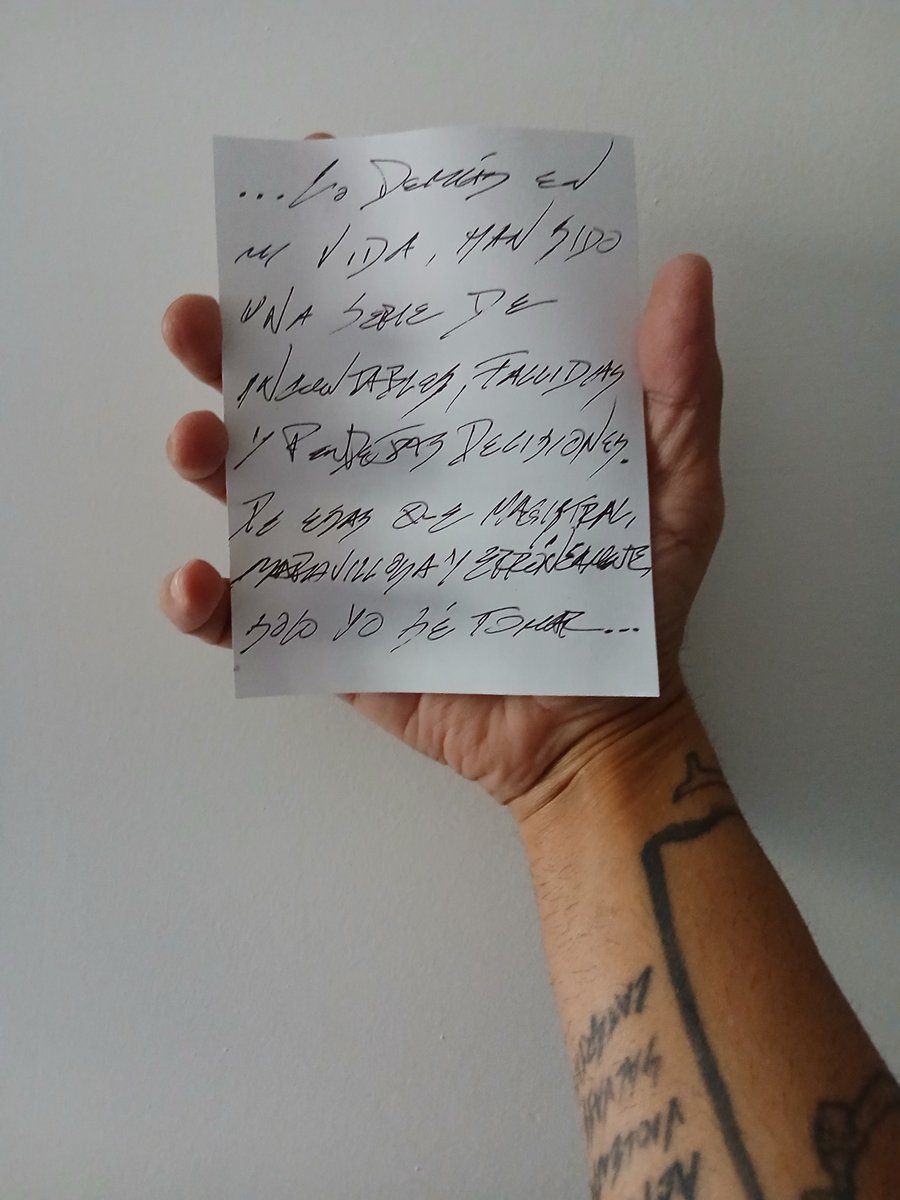 ...Lo DEMÁS EN
MI VIDA, HAN SIDO
UNA SERIE DE
INCONTABLES, FALLIDAS
Y PENDEJAS DECISIONES.
DE ESAS QUE MAGISTRAL,
MARAVILLOSA Y ERRÓNEAMENTE,
SOLO YO SÉ TOMAR...
SALVAJ
VIOLEN